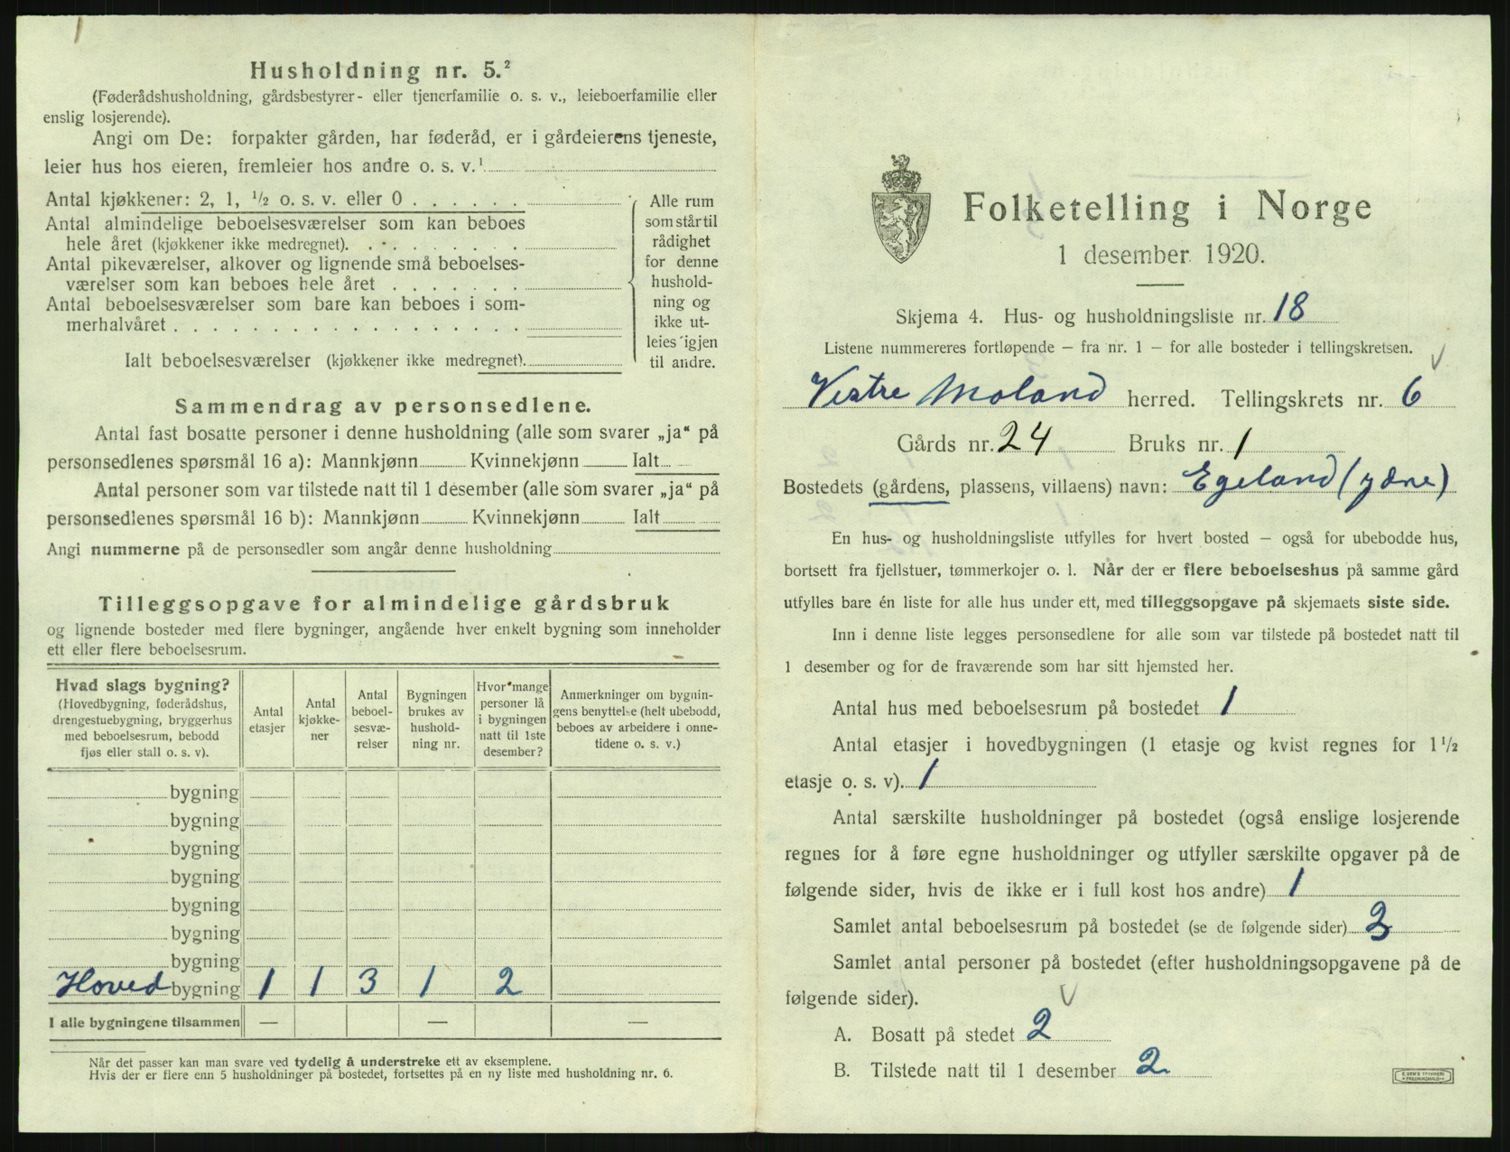 Husholdning nr. 5.²
(Føderådshusholdning, gårdsbestyrer- eller tjenerfamilie o. s. v., leieboerfamilie eller
enslig losjerende).
Angi om De: forpakter gården, har føderåd, er i gårdeierens tjeneste,
leier hus hos eieren, fremleier hos andre o. s. v.¹
Antal kjøkkener: 2, 1, ½ o. s. v. eller 0 . . . . . .
Antal almindelige beboelsesværelser som kan beboes
hele året (kjøkkener ikke medregnet). . . . . . . . .
Antal pikeværelser, alkover og lignende små beboelses-
værelser som kan beboes hele året . . . . . . .
Antal beboelsesværelser som bare kan beboes i som-
merhalvåret . . . . . . . . . . . . . . . . . .
Ialt beboelsesværelser (kjøkkener ikke medregnet).
Alle rum
som står til
rådighet
for denne
hushold-
ning og
ikke ut-
leies igjen
til andre.
Sammendrag av personsedlene.
Antal fast bosatte personer i denne husholdning (alle som svarer „ja“ på
personsedlenes spørsmål 16 a): Mannkjønn Kvinnekjønn Ialt
Antal personer som var tilstede natt til 1 desember (alle som svarer „ja“ på
personsedlenes spørsmål 16 b): Mannkjønn Kvinnekjønn Ialt
Angi nummerne på de personsedler som angår denne husholdning
Tilleggsopgave for almindelige gårdsbruk
og lignende bosteder med flere bygninger, angående hver enkelt bygning som inneholder
ett eller flere beboelsesrum.
Hvad slags bygning?
(Hovedbygning, føderådshus,
drengestuebygning, bryggerhus
med beboelsesrum, bebodd
fjøs eller stall o. s. v).
Antal
etasjer
Antal
kjøkke-
ner
Antal
beboel-
sesvæ-
relser
Bygningen
brukes av
hushold-
ning nr.
Hvor mange
personer lå
i bygningen
natt til 1ste
desember?
Anmerkninger om bygnin-
gens benyttelse (helt ubebodd,
beboes av arbeidere i onne-
tidene o. s. v.)
bygning
bygning
bygning
bygning
bygning
bygning
bygning
Hoved bygning 1 1 3 1 2
I alle bygningene tilsammen — — —
Når det passer kan man svare ved tydelig å understreke ett av eksemplene.
Hvis der er flere enn 5 husholdninger på bostedet, fortsettes på en ny liste med husholdning nr. 6.
Folketelling i Norge
1 desember 1920.
Skjema 4. Hus- og husholdningsliste nr. 18
Listene nummereres fortløpende — fra nr. 1 — for alle bosteder i tellingskretsen.
Vestre Moland herred. Tellingskrets nr. 6
Gårds nr. 24 Bruks nr. 1
Bostedets (gårdens, plassens, villaens) navn: Egeland (ydre)
En hus- og husholdningsliste utfylles for hvert bosted — også for ubebodde hus,
bortsett fra fjellstuer, tømmerkojer o. l. Når der er flere beboelseshus på samme gård
utfylles bare én liste for alle hus under ett, med tilleggsopgave på skjemaets siste side.
Inn i denne liste legges personsedlene for alle som var tilstede på bostedet natt til
1 desember og for de fraværende som har sitt hjemsted her.
Antal hus med beboelsesrum på bostedet 1
Antal etasjer i hovedbygningen (1 etasje og kvist regnes for 1½
etasje o. s. v). 1
Antal særskilte husholdninger på bostedet (også enslige losjerende
regnes for å føre egne husholdninger og utfyller særskilte opgaver på de
følgende sider, hvis de ikke er i full kost hos andre) 1
Samlet antal beboelsesrum på bostedet (se de følgende sider) 3
Samlet antal personer på bostedet (efter husholdningsopgavene på de
følgende sider).
A. Bosatt på stedet 2
B. Tilstede natt til 1 desember 2